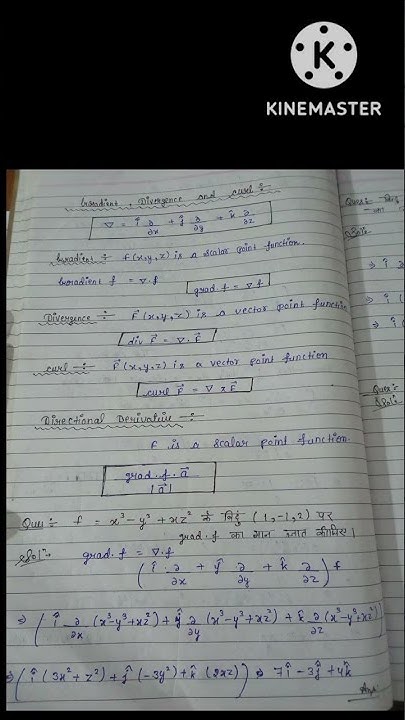 K
KINEMASTER
Gradient, Divergence and curl :-
∇ = î ∂/∂x + ĵ ∂/∂y + k̂ ∂/∂z
Gradient :- f(x,y,z) is a scalar point function.
Gradient f = ∇.f
grad.f = ∇f
Divergence :- F⃗(x,y,z) is a vector point function
div F⃗ = ∇.F⃗
curl :- F⃗(x,y,z) is a vector point function
curl F⃗ = ∇ x F⃗
Directional Derivative :-
f is a scalar point function.
grad.f. a⃗ / |a⃗|
Ques :- f = x³-y³+xz² के बिंदु (1,-1,2) पर
grad.f का मान ज्ञात कीजिए।
Sol:- grad.f = ∇.f
(î ∂/∂x + ĵ ∂/∂y + k̂ ∂/∂z) f
⇒ (î ∂/∂x (x³-y³+xz²) + ĵ ∂/∂y (x³-y³+xz²) + k̂ ∂/∂z (x³-y³+xz²))
⇒ (î (3x²+z²) + ĵ (-3y²) + k̂ (2xz)) ⇒ 7î - 3ĵ + 4k̂
Ans
Ques:-
Ques:-